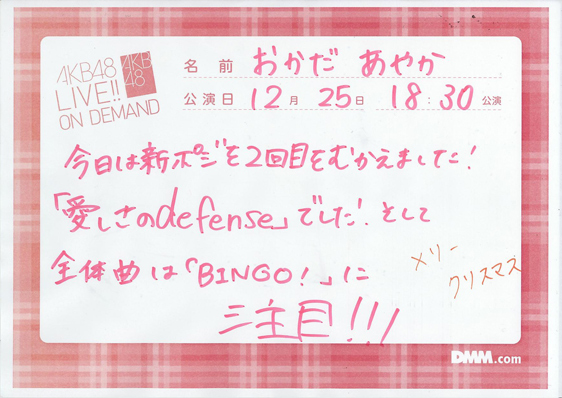 AKB48
LIVE!!
ON DEMAND
AKB
48
名前 おかだ あやか
公演日 12月 25日 18:30 公演
今日は新ポジを2回目をむかえました!
「愛しさのdefense」でした!そして
全体曲は「BINGO!」に
注目!!!
メリー
クリスマス
DMM.com